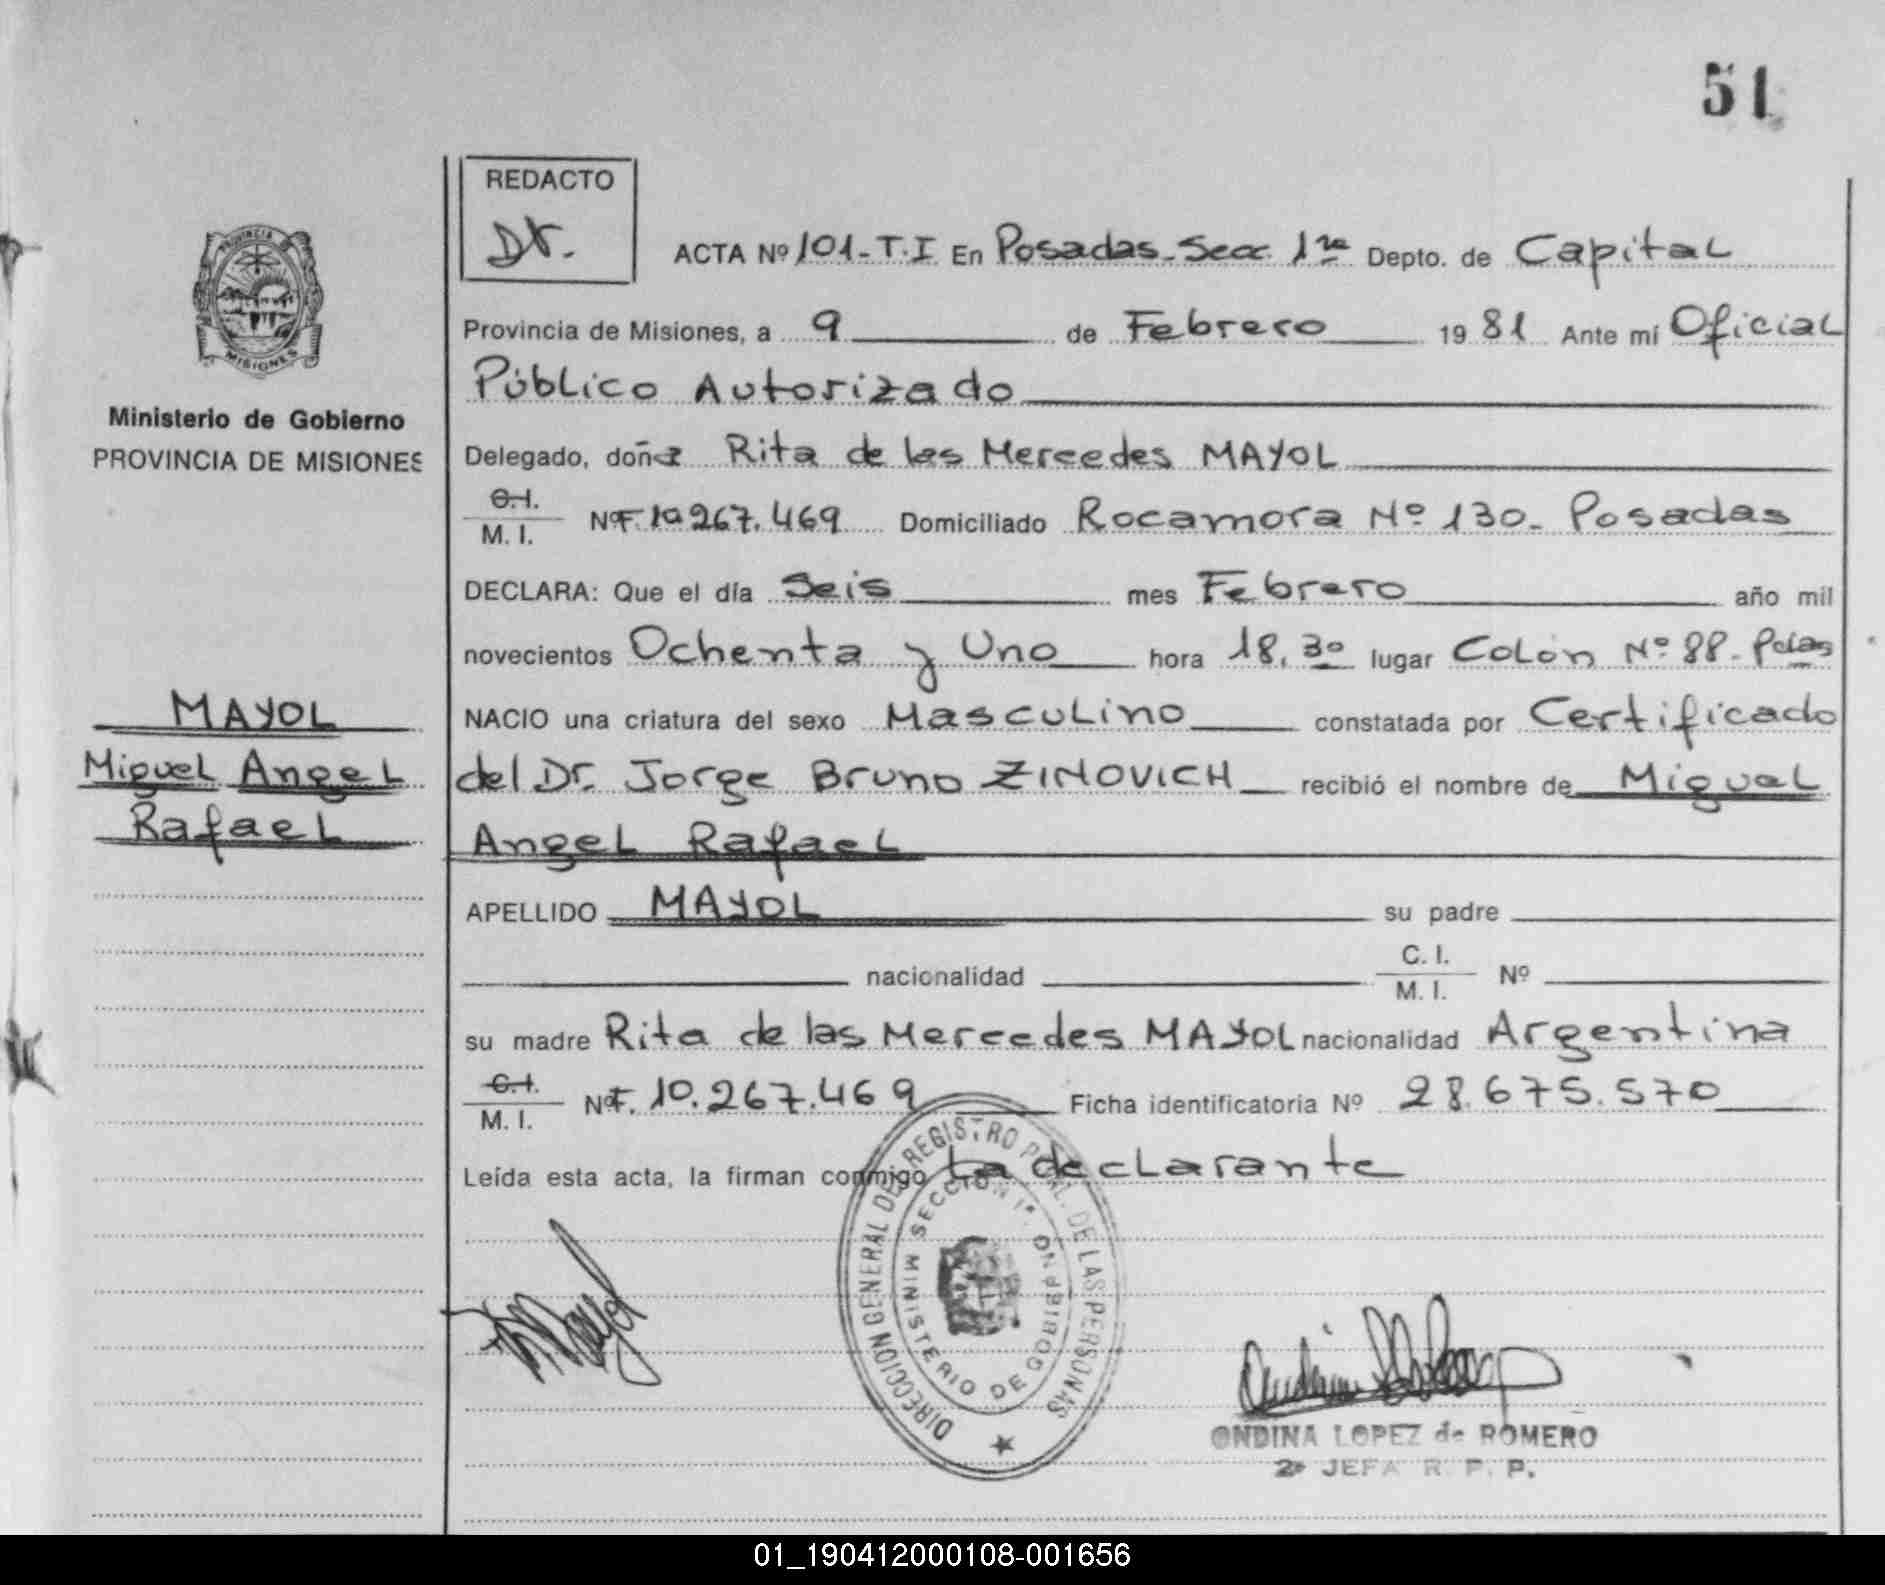 51
REDACTO
Dr.
ACTA Nº 101-T.I En Posadas-Secc. 1ra Depto. de Capital
Provincia de Misiones, a 9 de Febrero 1981 Ante mí Oficial
Público Autorizado
Delegado, doña Rita de las Mercedes MAYOL
C.I. / M. I. Nº F. 10.267.469 Domiciliado Rocamora Nº 130- Posadas
DECLARA: Que el día Seis mes Febrero año mil
novecientos Ochenta y Uno hora 18,30 lugar Colón Nº 88- Pdas
NACIO una criatura del sexo Masculino constatada por Certificado
del Dr. Jorge Bruno ZINOVICH recibió el nombre de Miguel
Angel Rafael
APELLIDO MAYOL su padre
nacionalidad C. I. / M. I. Nº
su madre Rita de las Mercedes MAYOL nacionalidad Argentina
C.I. / M. I. Nº F. 10.267.469 Ficha identificatoria Nº 28.675.570
Leída esta acta, la firman conmigo La declarante
PROVINCIA DE MISIONES
Ministerio de Gobierno
PROVINCIA DE MISIONES
MAYOL
Miguel Angel
Rafael
Mayol
DIRECCION GENERAL DEL REGISTRO PCIAL. DE LAS PERSONAS
SECCION 1ª.
MINISTERIO DE GOBIERNO
ONDINA LOPEZ de ROMERO
2ª JEFA R. P. P.
01_190412000108-001656